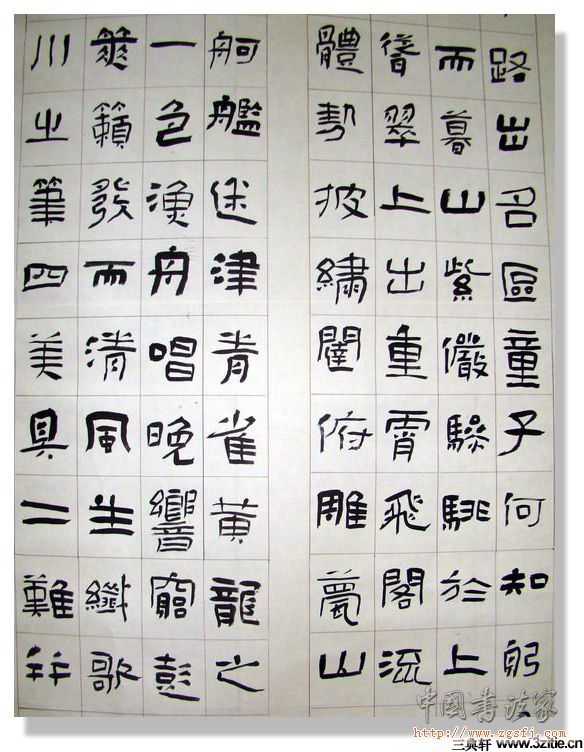 路出名區童子何知躬
而暮山紫儼驂騑於上
聳翠上出重霄飛閣流
體勢披繡闥俯雕甍山
舸艦迷津青雀黃龍之
一色漁舟唱晚響窮彭
爽籟發而清風生纖歌
川之筆四美具二難并
中国书法家
http://www.zgsfj.com
三典轩 www.32itie.cn